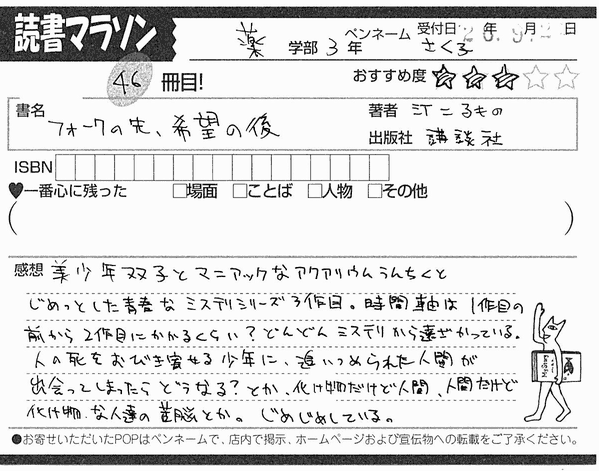 読書マラソン
薬 学部 3年 ペンネーム さくら 受付日 年 月 日
46 冊目!
おすすめ度 ★★★☆☆
書名 フォークの先、希望の後
著者 汀こるもの
出版社 講談社
ISBN
♥一番心に残った □場面 □ことば □人物 □その他
( )
感想 美少年双子とマニアックなアクアリウムうんちくと
じめっとした青春なミステリシリーズ3作目。時間軸は1作目の
前から2作目にかかるくらい?どんどんミステリから遠ざかっている。
人の死をおびき寄せる少年に、追いつめられた人間が
出会ってしまったらどうなる?とか、化け物だけど人間、人間だけど
化け物な人達の苦悩とか。じめじめしている。
●お寄せいただいたPOPはペンネームで、店内で掲示、ホームページおよび宣伝物への転載をご了承ください。